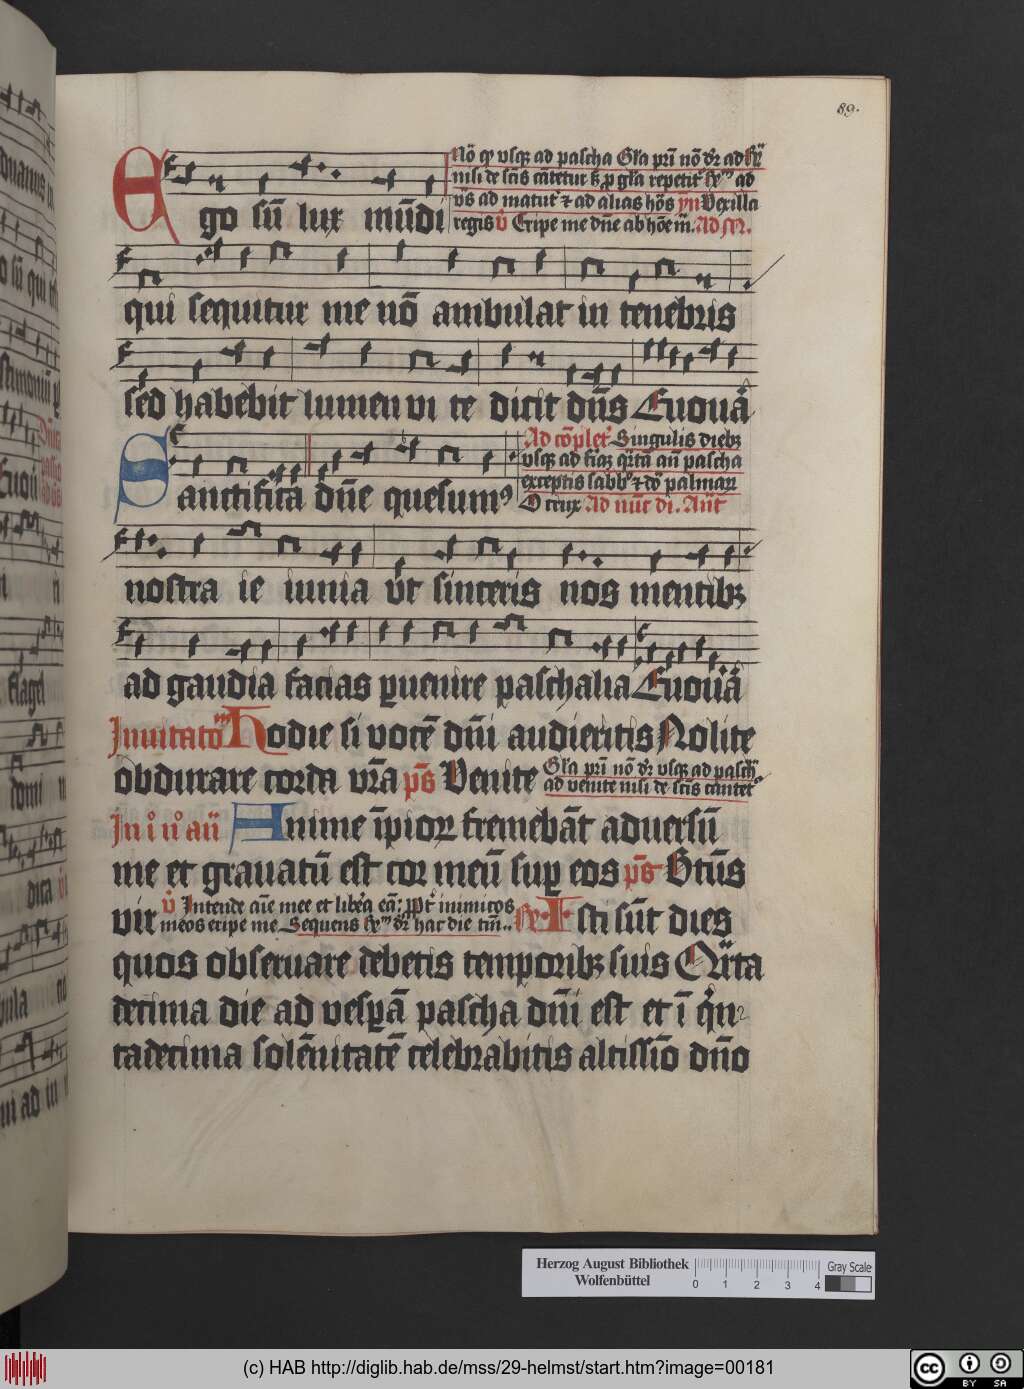 89.
Nō qͥ vsqꝫ ad pascha Gl̄a pri̅ nō dr̄ ad ℟
nisi de sc̄is cātetur ʒ ꝓ gl̄a repetit͛ ℟ ad
v̄s ad matut͛ ⁊ ad alias hōs yn Vexilla
regis v̊ Eripe me dn̄e ab hōe m̄. Ad m̄.
Ego sū lux mūdi
qui sequitur me nō ambulat in tenebris
sed habebit lumen vi te dicit dn̄s Euouā
Ad cōplet͛ Singulis diebꝫ
vsqꝫ ad
exceptis sabb̄ ⁊ dō palmaꝝ
O crux Ad nūc di. An̄t
Sanctifita dn̄e quesumꝰ
nostra ie iunia vt sinceris nos mentibꝫ
ad gaudia facias ꝑuenire paschalia Euouā
Inuitatoͫ Hodie si vocē dn̄i audieritis Nolite
obdurare corda vr̄a p̄s Venite Gl̄a pri̅ nō dr̄ vsqꝫ ad pasch̄
ad venite nisi de sc̄is cantet͛
In i̊ n̊ an̄ Anime īpioꝝ fremebāt aduersū
me et grauatū est cor meū suꝑ eos p̄s Btūs
vir v̊ Intende aīe mee et libera eā: ꝓpt͛ inimicos
meos eripe me Sequens ℟ dr̄ hac die tm̄..
℟ Isti sūt dies
quos obseruare debetis temporibꝫ suis Qr̄ta
decima die ad vesꝑā pascha dn̄i est et ī qͥn
tadecima solēnitatē celebrabitis altissīo dn̄o
Herzog August Bibliothek
Wolfenbüttel
0 1 2 3 4
Gray Scale
(c) HAB http://diglib.hab.de/mss/29-helmst/start.htm?image=00181
cc BY SA